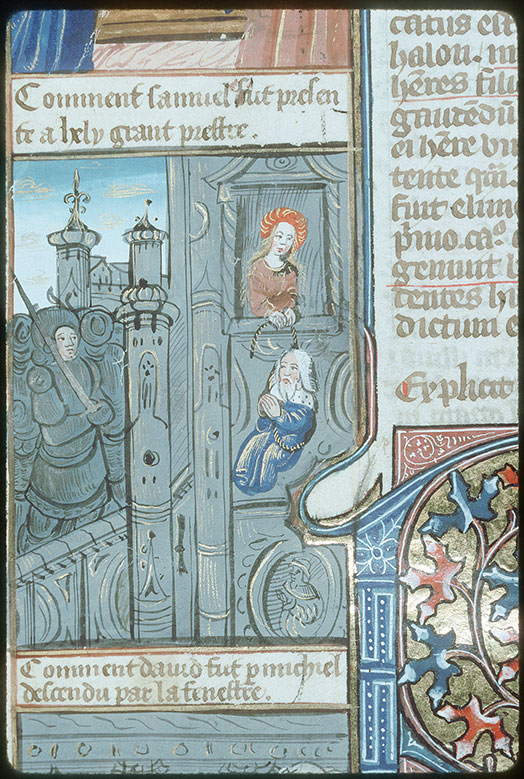 Comment samuel fut presen
te a hely grant prestre.
Comment david fut p michiel
descendu par la fenestre.
catus est
halon. m
heres fili
gnitedu
ei here vn
tente
fuit elim
pmo. ca
genuit
tentes hi
dictum e
Explicat